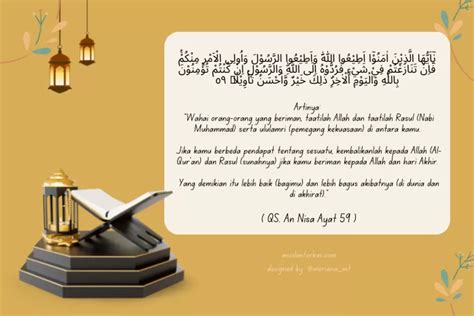 يٰٓاَيُّهَا الَّذِيْنَ اٰمَنُوْٓا اَطِيْعُوا اللّٰهَ وَاَطِيْعُوا الرَّسُوْلَ وَاُولِى الْاَمْرِ مِنْكُمْۚ
فَاِنْ تَنَازَعْتُمْ فِيْ شَيْءٍ فَرُدُّوْهُ اِلَى اللّٰهِ وَالرَّسُوْلِ اِنْ كُنْتُمْ تُؤْمِنُوْنَ
بِاللّٰهِ وَالْيَوْمِ الْاٰخِرِۗ ذٰلِكَ خَيْرٌ وَّاَحْسَنُ تَأْوِيْلًا ٥٩
Artinya
"Wahai orang-orang yang beriman, taatilah Allah dan taatilah Rasul (Nabi
Muhammad) serta ululamri (pemegang kekuasaan) di antara kamu.
Jika kamu berbeda pendapat tentang sesuatu, kembalikanlah kepada Allah (Al-
Qur'an) dan Rasul (sunahnya) jika kamu beriman kepada Allah dan hari Akhir.
Yang demikian itu lebih baik (bagimu) dan lebih bagus akibatnya (di dunia dan
di akhirat)."
( QS. An Nisa Ayat 59 )
designed by